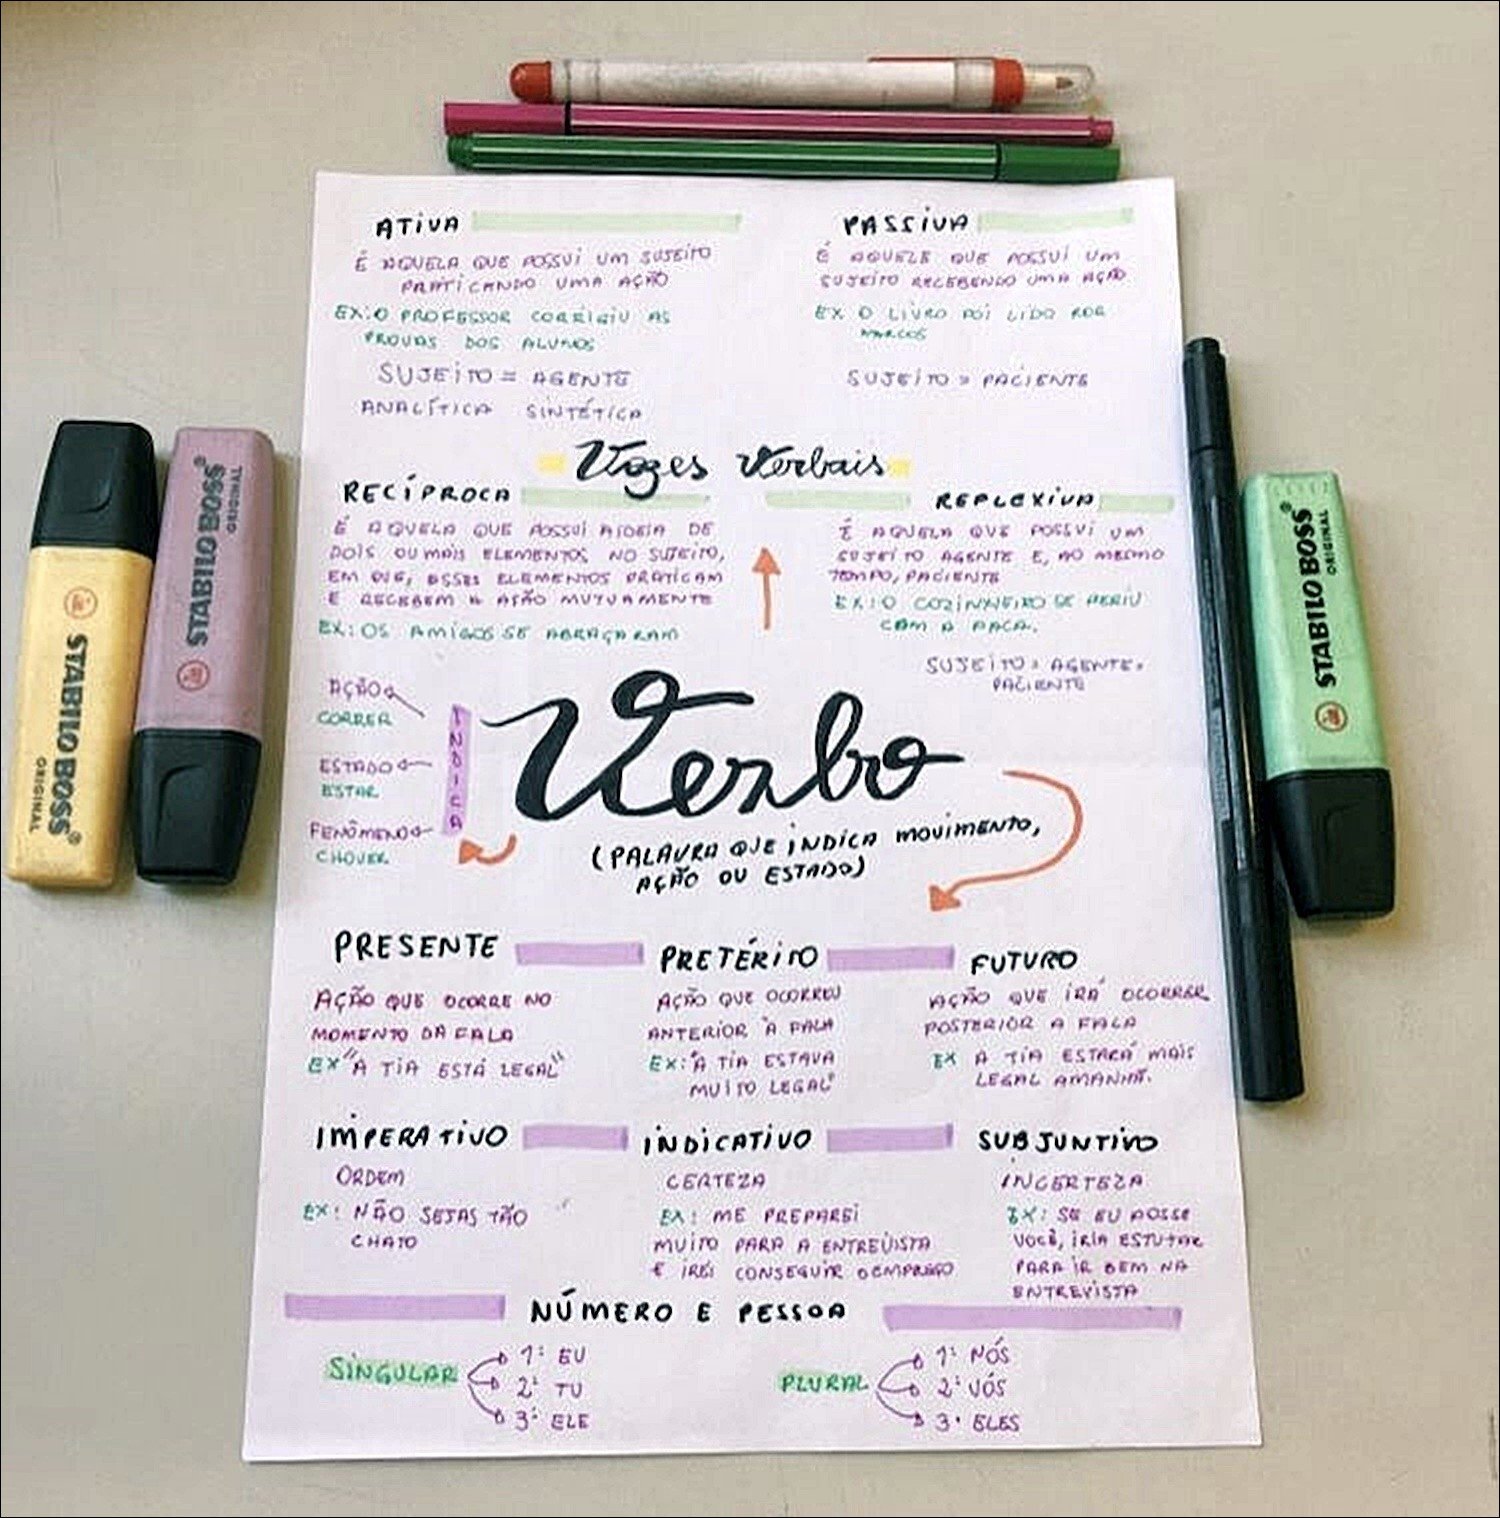 ATIVA
É AQUELA QUE POSSUI UM SUJEITO
PRATICANDO UMA AÇÃO
EX: O PROFESSOR CORRIGIU AS
PROVAS DOS ALUNOS
SUJEITO = AGENTE
ANALÍTICA SINTÉTICA
PASSIVA
É AQUELE QUE POSSUI UM
SUJEITO RECEBENDO UMA AÇÃO
EX O LIVRO FOI LIDO POR
MARCOS
SUJEITO = PACIENTE
Vozes Verbais
RECÍPROCA
É AQUELA QUE POSSUI A IDEIA DE
DOIS OU MAIS ELEMENTOS NO SUJEITO,
EM QUE, ESSES ELEMENTOS PRATICAM
E RECEBEM A AÇÃO MUTUAMENTE
EX: OS AMIGOS SE ABRAÇARAM
REFLEXIVA
É AQUELA QUE POSSUI UM
SUJEITO AGENTE E, AO MESMO
TEMPO, PACIENTE
EX: O COZINHEIRO SE FERIU
COM A FACA.
SUJEITO = AGENTE =
PACIENTE
AÇÃO
CORRER
ESTADO
ESTAR
FENÔMENO
CHOVER
INDICA
Verbo
(PALAVRA QUE INDICA MOVIMENTO,
AÇÃO OU ESTADO)
PRESENTE
AÇÃO QUE OCORRE NO
MOMENTO DA FALA
EX "A TIA ESTÁ LEGAL"
PRETÉRITO
AÇÃO QUE OCORREU
ANTERIOR À FALA
EX: "A TIA ESTAVA
MUITO LEGAL"
FUTURO
AÇÃO QUE IRÁ OCORRER
POSTERIOR A FALA
EX A TIA ESTARÁ MAIS
LEGAL AMANHÃ.
IMPERATIVO
ORDEM
EX: NÃO SEJAS TÃO
CHATO
INDICATIVO
CERTEZA
EX: ME PREPAREI
MUITO PARA A ENTREVISTA
E IREI CONSEGUIR O EMPREGO
SUBJUNTIVO
INCERTEZA
EX: SE EU FOSSE
VOCÊ, IRIA ESTUTAR
PARA IR BEM NA
ENTREVISTA
NÚMERO E PESSOA
SINGULAR
1ª EU
2ª TU
3ª ELE
PLURAL
1ª NÓS
2ª VÓS
3ª ELES
STABILO BOSS®
ORIGINAL
STABILO BOSS®
ORIGINAL
STABILO BOSS®
ORIGINAL